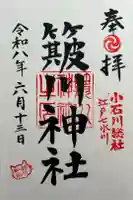 奉拝
小石川総社
江戸七氷川
簸川神社
令和八年六月十三日